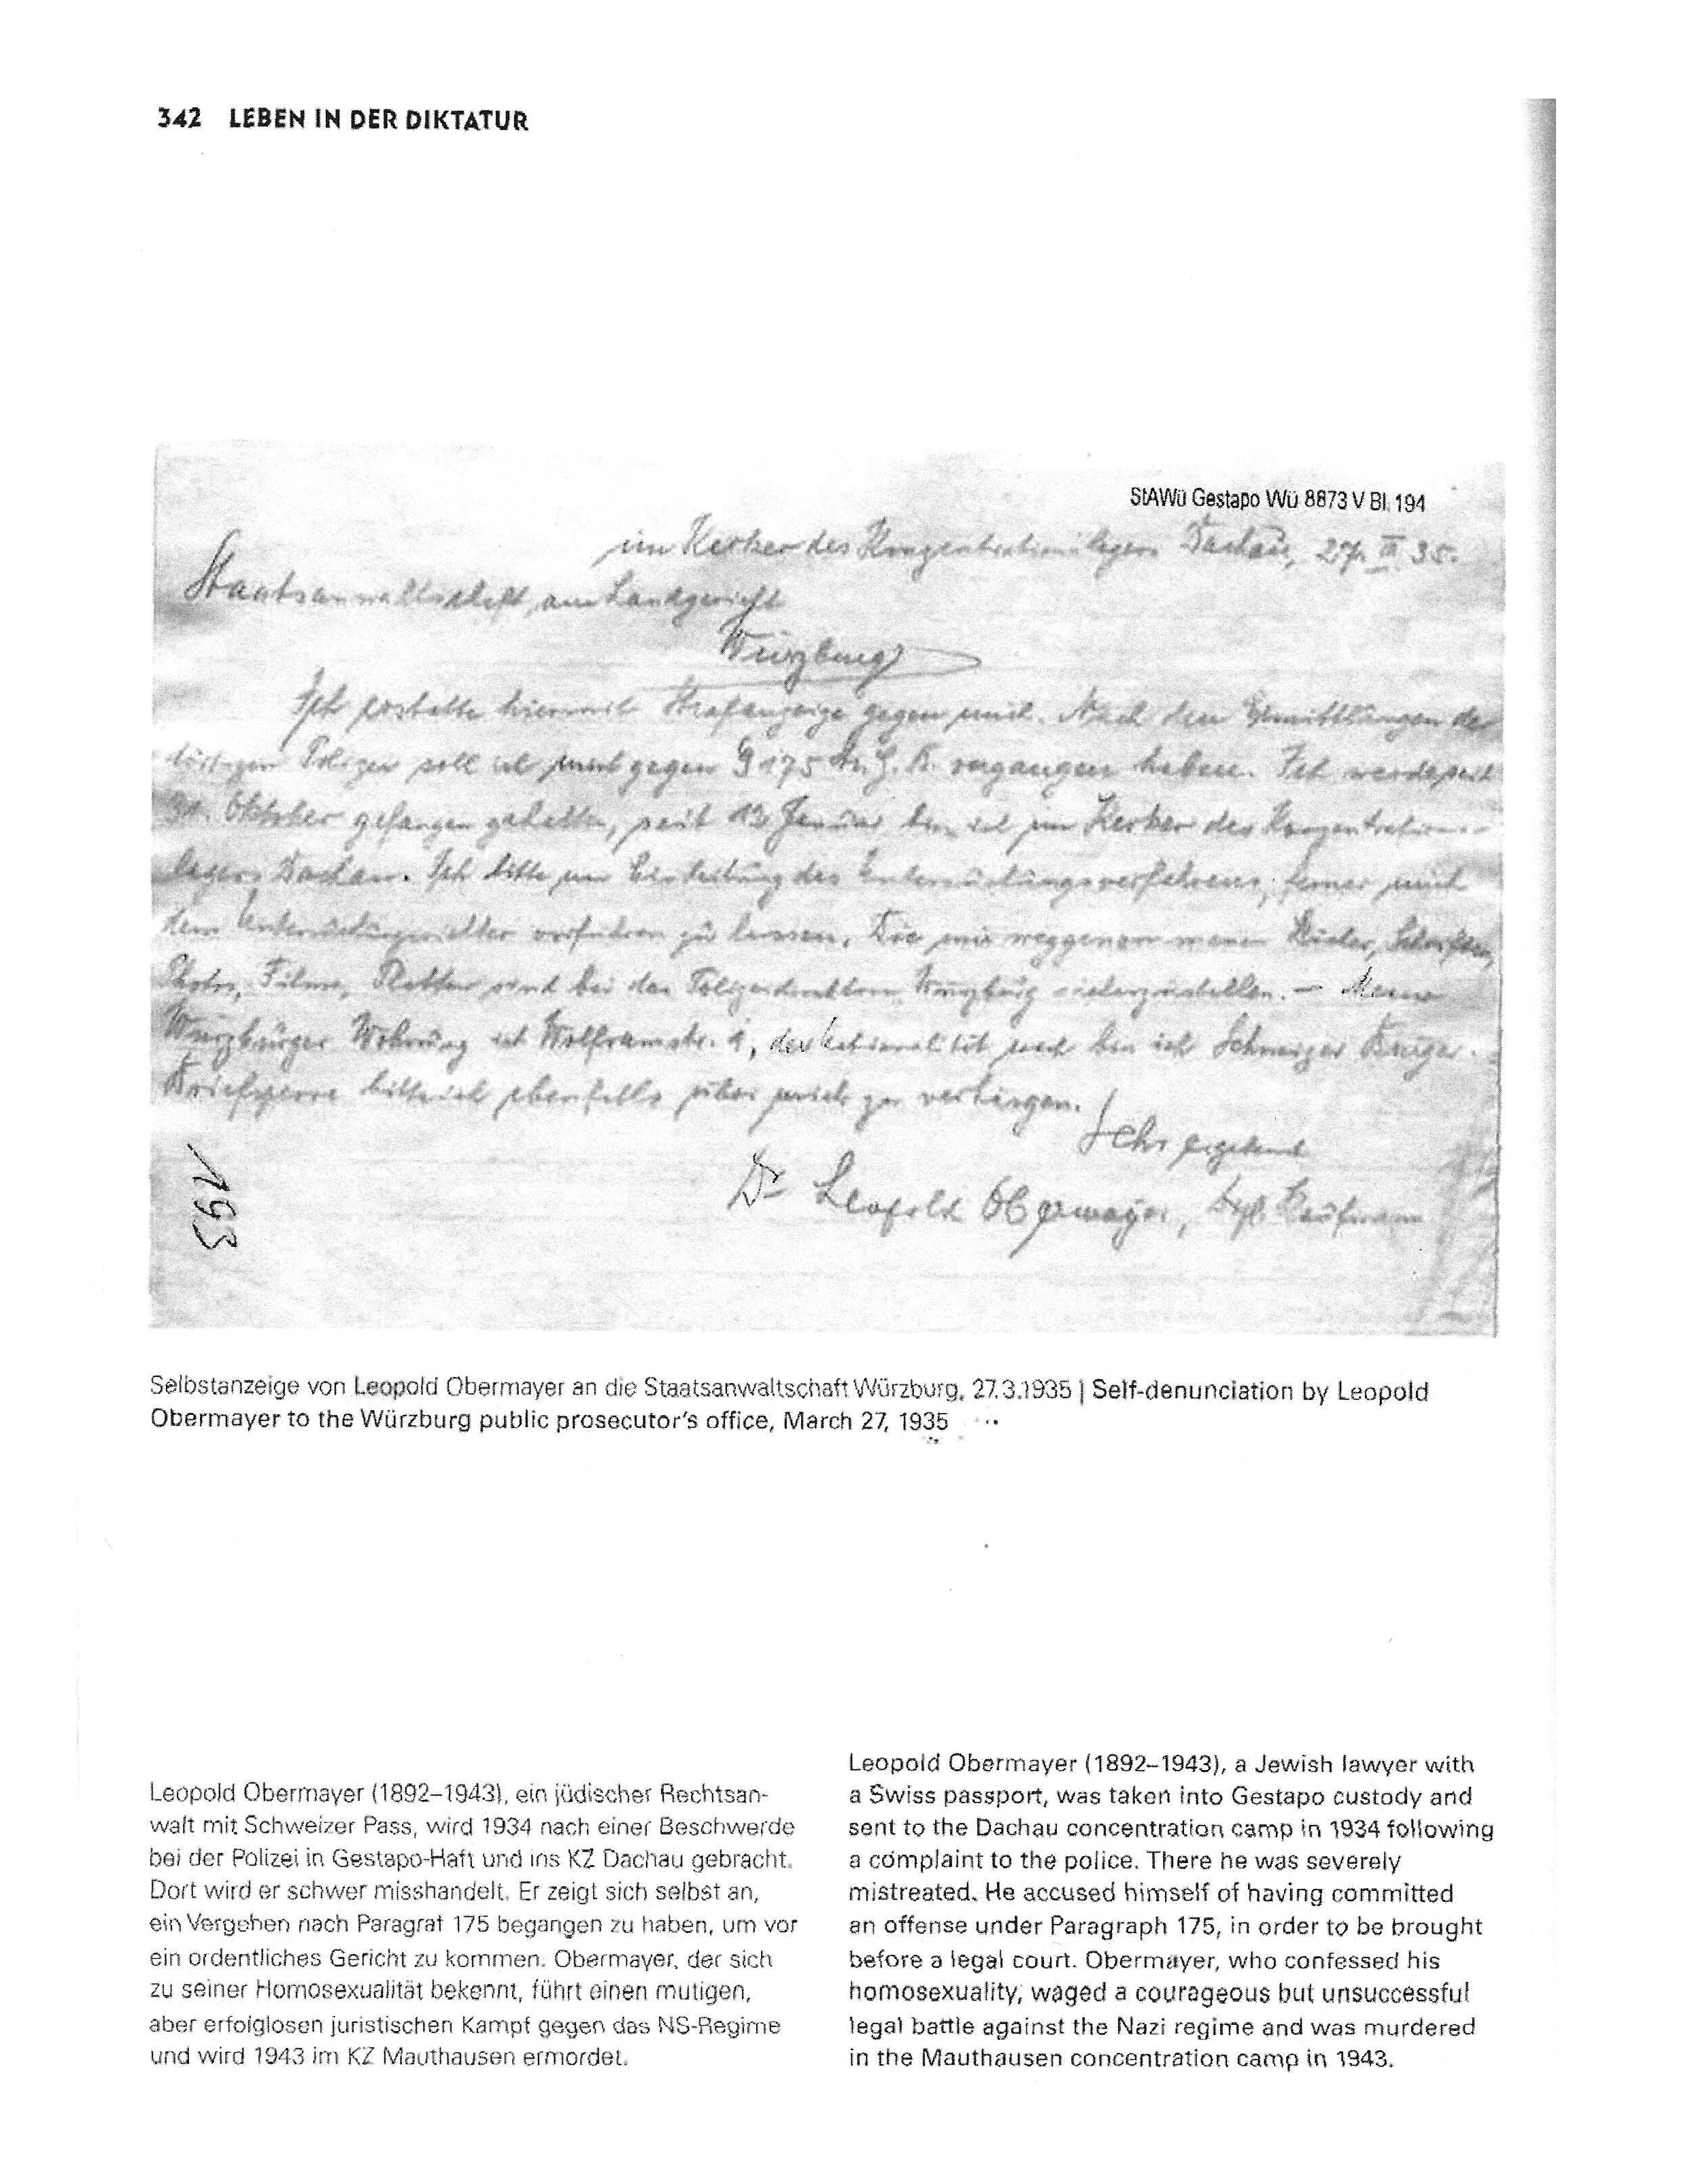 342 LEBEN IN DER DIKTATUR
StAWü Gestapo Wü 8873 V Bl. 194
im Kerker des Konzentrationslagers Dachau, 27. III. 35.
Staatsanwaltschaft am Landgericht
Würzburg
Ich erstatte hiermit Strafanzeige gegen mich. Nach den Ermittlungen der
Polizei soll ich mich gegen § 175 vergangen haben. Ich werde seit
31. Oktober gefangen gehalten, seit 12. Januar bin ich im Kerker des Konzentrations-
lagers Dachau. Ich bitte um Einleitung des Untersuchungsverfahrens, ferner mich
dem Untersuchungsrichter vorführen zu lassen. Die mir weggenommenen Bücher, Schriften,
Photos, Filme, Platten sind bei der Polizeidirektion Würzburg sicherzustellen. – Meine
Würzburger Wohnung ist Wolframstr. 1, der Nationalität nach bin ich Schweizer Bürger.
Briefsperre bitte ich ebenfalls über mich zu verhängen.
Sehr ergebenst
Dr Leopold Obermayer, Kaufmann
193
Selbstanzeige von Leopold Obermayer an die Staatsanwaltschaft Würzburg, 27.3.1935 | Self-denunciation by Leopold
Obermayer to the Würzburg public prosecutor's office, March 27, 1935
Leopold Obermayer (1892–1943), ein jüdischer Rechtsan-
walt mit Schweizer Pass, wird 1934 nach einer Beschwerde
bei der Polizei in Gestapo-Haft und ins KZ Dachau gebracht.
Dort wird er schwer misshandelt. Er zeigt sich selbst an,
ein Vergehen nach Paragraf 175 begangen zu haben, um vor
ein ordentliches Gericht zu kommen. Obermayer, der sich
zu seiner Homosexualität bekennt, führt einen mutigen,
aber erfolglosen juristischen Kampf gegen das NS-Regime
und wird 1943 im KZ Mauthausen ermordet.
Leopold Obermayer (1892–1943), a Jewish lawyer with
a Swiss passport, was taken into Gestapo custody and
sent to the Dachau concentration camp in 1934 following
a complaint to the police. There he was severely
mistreated. He accused himself of having committed
an offense under Paragraph 175, in order to be brought
before a legal court. Obermayer, who confessed his
homosexuality, waged a courageous but unsuccessful
legal battle against the Nazi regime and was murdered
in the Mauthausen concentration camp in 1943.